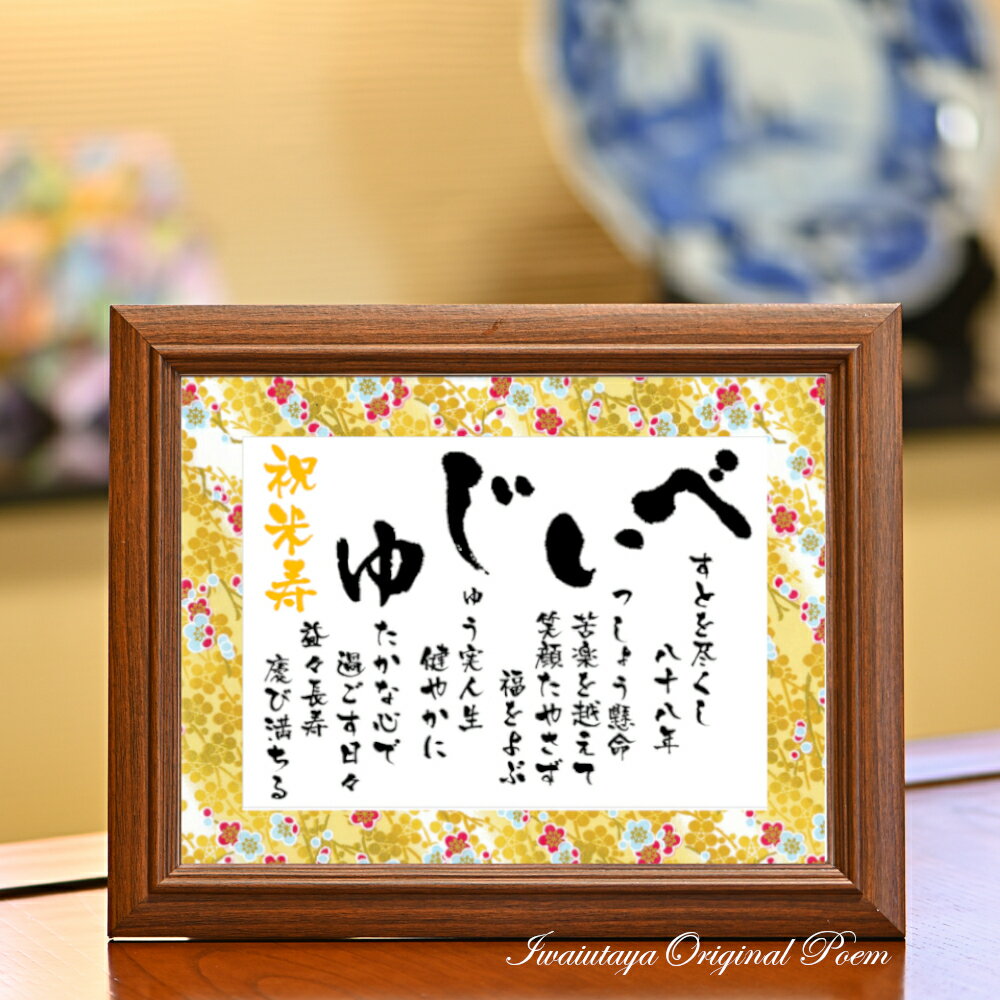 べすとを尽くし
八十八年
いつしょう懸命
苦楽を越えて
笑顔たやさず
福をよぶ
じゅう実人生
健やかに
ゆたかな心で
過ごす日々
益々長寿
慶び満ちる
祝米寿
Iwaiutaya Original Poem